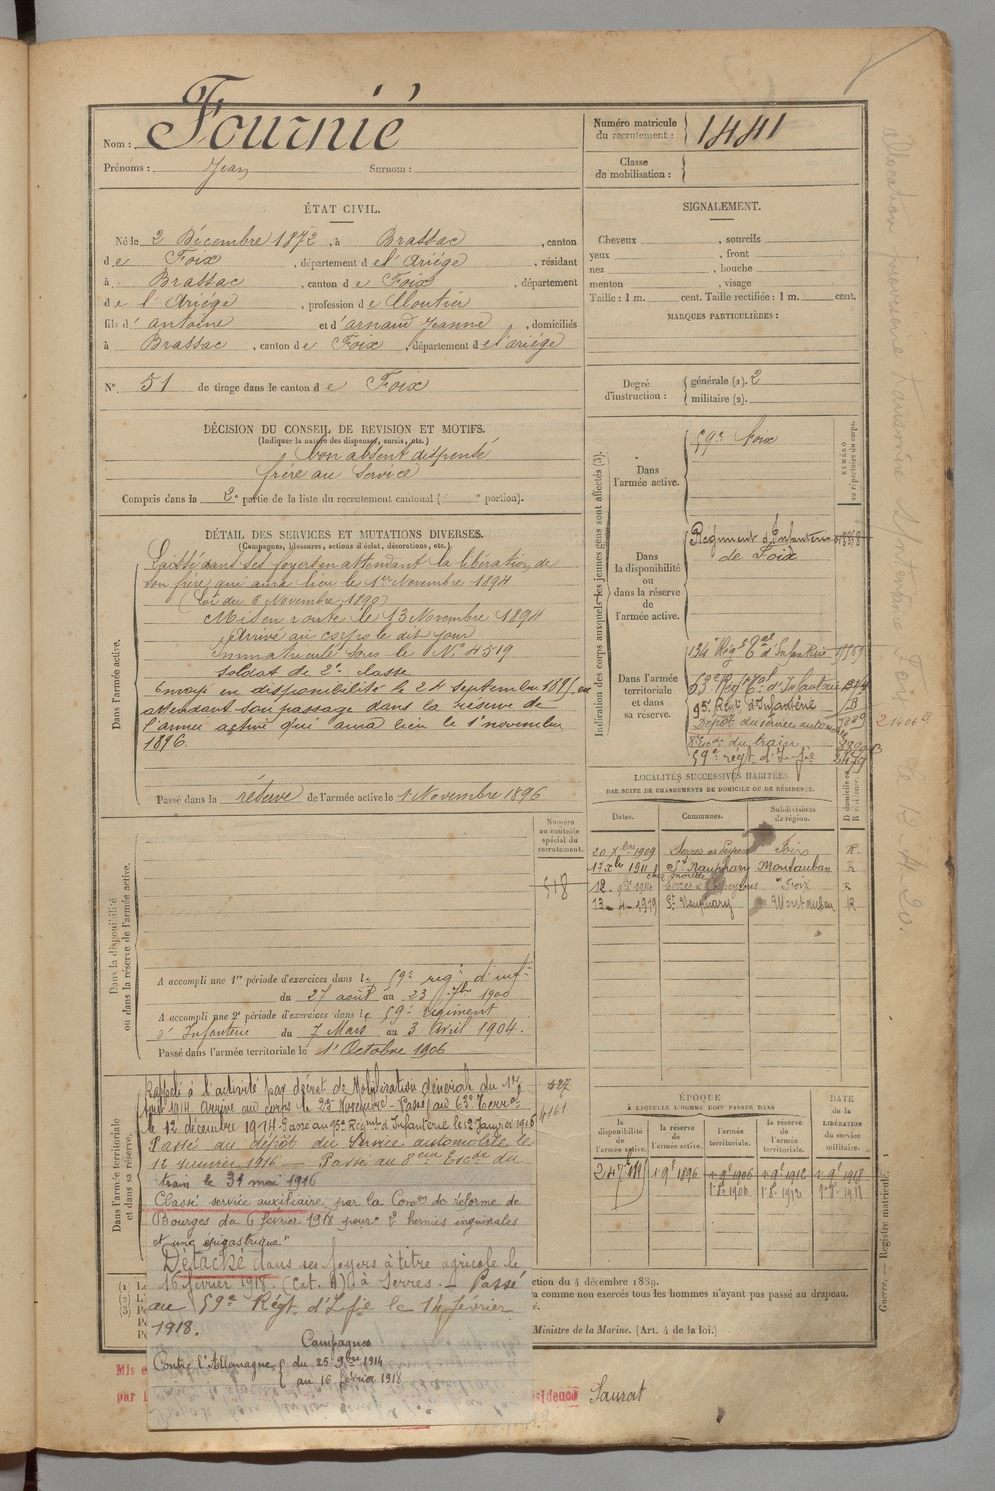 Nom : Fournié
Prénoms : Jean Surnom :
Numéro matricule du recrutement : 1441
Classe de mobilisation :
ÉTAT CIVIL.
Né le 2 Décembre 1872, à Brassac, canton
de Foix, département de l'Ariége, résidant
à Brassac, canton de Foix, département
de l'Ariége, profession de Cloutier
fils d'antoine et d'arnaud Jeanne, domiciliés
à Brassac, canton de Foix, département de l'ariége
N° 51 de tirage dans le canton de Foix
DÉCISION DU CONSEIL DE REVISION ET MOTIFS.
(Indiquer la nature des dispenses, sursis, etc.)
bon absent dispensé
frère au service
Compris dans la 2e partie de la liste du recrutement cantonal ( e portion).
DÉTAIL DES SERVICES ET MUTATIONS DIVERSES.
(Campagnes, blessures, actions d'éclat, décorations, etc.)
Dans l'armée active.
Laissé dans ses foyers en attendant la libération de
son frère qui aura lieu le 1er Novembre 1894
(Loi du 6 Novembre 1890)
Mis en route le 13 Novembre 1894
Arrivé au corps le dit jour
immatriculé sous le N° 4519
soldat de 2e classe
Envoyé en disponibilité le 24 septembre 1895 en
attendant son passage dans la réserve de
l'armée active qui aura lieu le 1er novembre
1896.
Passé dans la réserve de l'armée active le 1 Novembre 1896
Numéro au contrôle spécial du recrutement.
518
Dans la disponibilité ou dans la réserve de l'armée active.
A accompli une 1re période d'exercices dans le 59e reg.t d'inf.ie
du 27 août au 23 7bre 1900
A accompli une 2e période d'exercices dans le 59e régiment
d'Infanterie du 7 Mars au 3 Avril 1904.
Passé dans l'armée territoriale le 1er Octobre 1906
Dans l'armée territoriale et dans sa réserve.
Rappelé à l'activité par décret de Mobilisation générale du 1er
août 1914. Arrivé au corps le 25 Novembre - Passé au 63e Terr.al
le 12 décembre 1914. Passé au 95e Régiment d'Infanterie le 12 Janvier 1916
Passé au dépôt du Service automobile le
12 janvier 1916 — Passé au 8em Esc.on du
train le 31 mai 1916
Classé service auxiliaire par la Con.on de réforme de
Bourges du 6 février 1918 pour "2 hernies inguinales
et une épigastrique"
Détaché dans ses foyers à titre agricole le
16 février 1918. (Cat. A) à Serres. — Passé
au 59e Régt. d'Ifie le 14 février
1918.
Campagnes
Contre l'Allemagne { du 25 9bre 1914
au 16 février 1918
427
4161
SIGNALEMENT.
Cheveux , sourcils
yeux , front
nez , bouche
menton , visage
Taille : 1 m. cent. Taille rectifiée : 1 m. cent.
MARQUES PARTICULIÈRES :
Degré d'instruction : générale (1). 2
militaire (2).
Indication des corps auxquels les jeunes gens sont affectés (3).
NUMÉRO au répertoire du corps.
Dans l'armée active.
59e Foix
Dans la disponibilité ou dans la réserve de l'armée active.
Régiment d'Infanterie
de Foix
Dans l'armée territoriale et dans sa réserve.
134e Rég.t T.al d'Infanterie
63e Rég.t T.al d'Infanterie
95e Régt d'Infanterie
Dépôt du service automobile
8e Esc.on du train
59e régt d'Ifie
LOCALITÉS SUCCESSIVES HABITÉES
PAR SUITE DE CHANGEMENTS DE DOMICILE OU DE RÉSIDENCE.
Dates. Communes. Subdivisions de région. D domicile ou R résidence.
20 Xbre 1909 Foix R
17 Xbre 1911 St Nauphary Montauban R
12 - 9bre 1914 Foix R
13 - 4 - 1919 St Nauphary Montauban R
ÉPOQUE
À LAQUELLE L'HOMME DOIT PASSER DANS
DATE de la LIBÉRATION du service militaire.
la disponibilité de l'armée active. la réserve de l'armée active. l'armée territoriale. la réserve de l'armée territoriale.
1 9e 1896 1 9e 1906 1 9e 1912 1 9e 1918
1er 8e 1906 1er 8e 1912 1er 8e 1918
ction du 4 décembre 1889.
a comme non exercés tous les hommes n'ayant pas passé au drapeau.
Ministre de la Marine. (Art. 4 de la loi.)
Mis e
par l
sidence Saurat
Guerre. — Registre matricule. 1